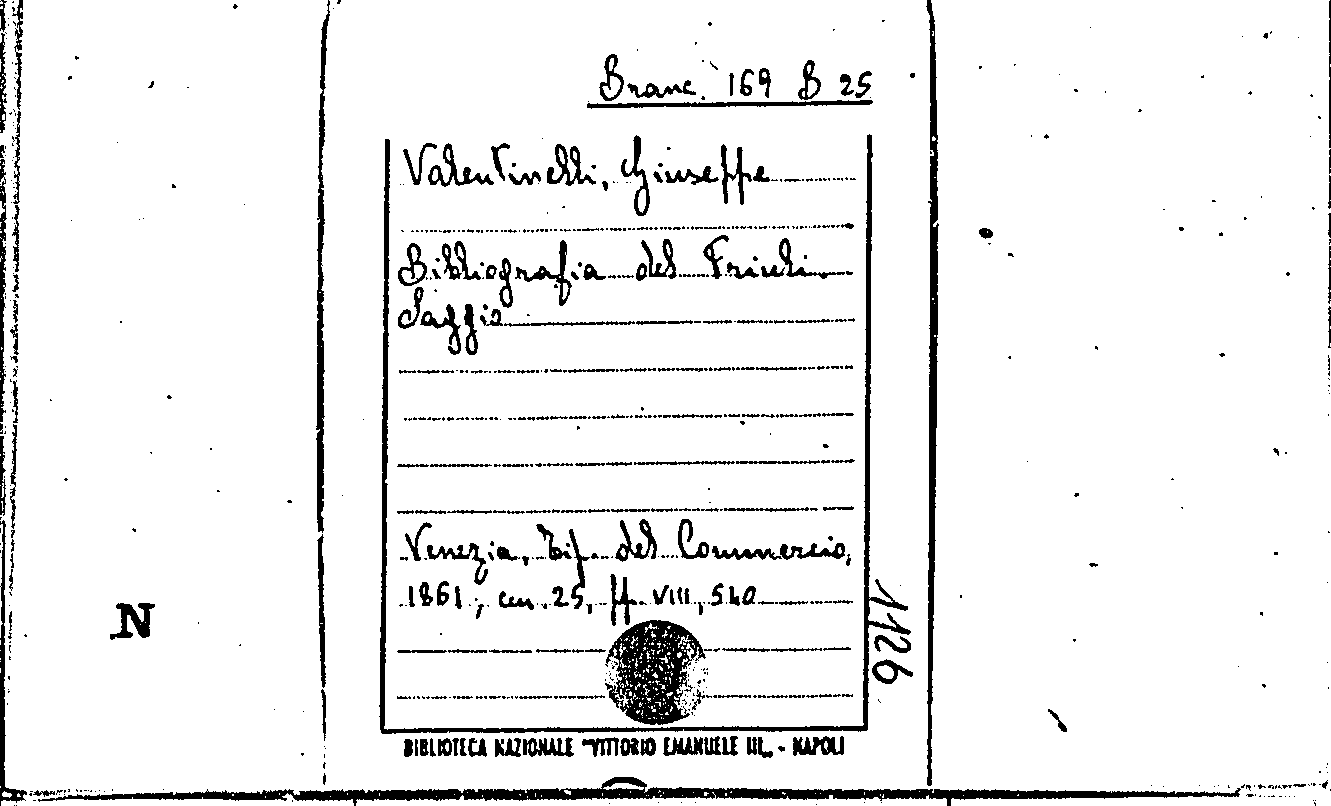 Branc. 169 B 25
Valentinelli, Giuseppe
Bibliografia del Friuli.
Saggio
Venezia, Tip. del Commercio,
1861, cm. 25, pp. VIII, 540
1126
N
BIBLIOTECA NAZIONALE "VITTORIO EMANUELE III„ - NAPOLI